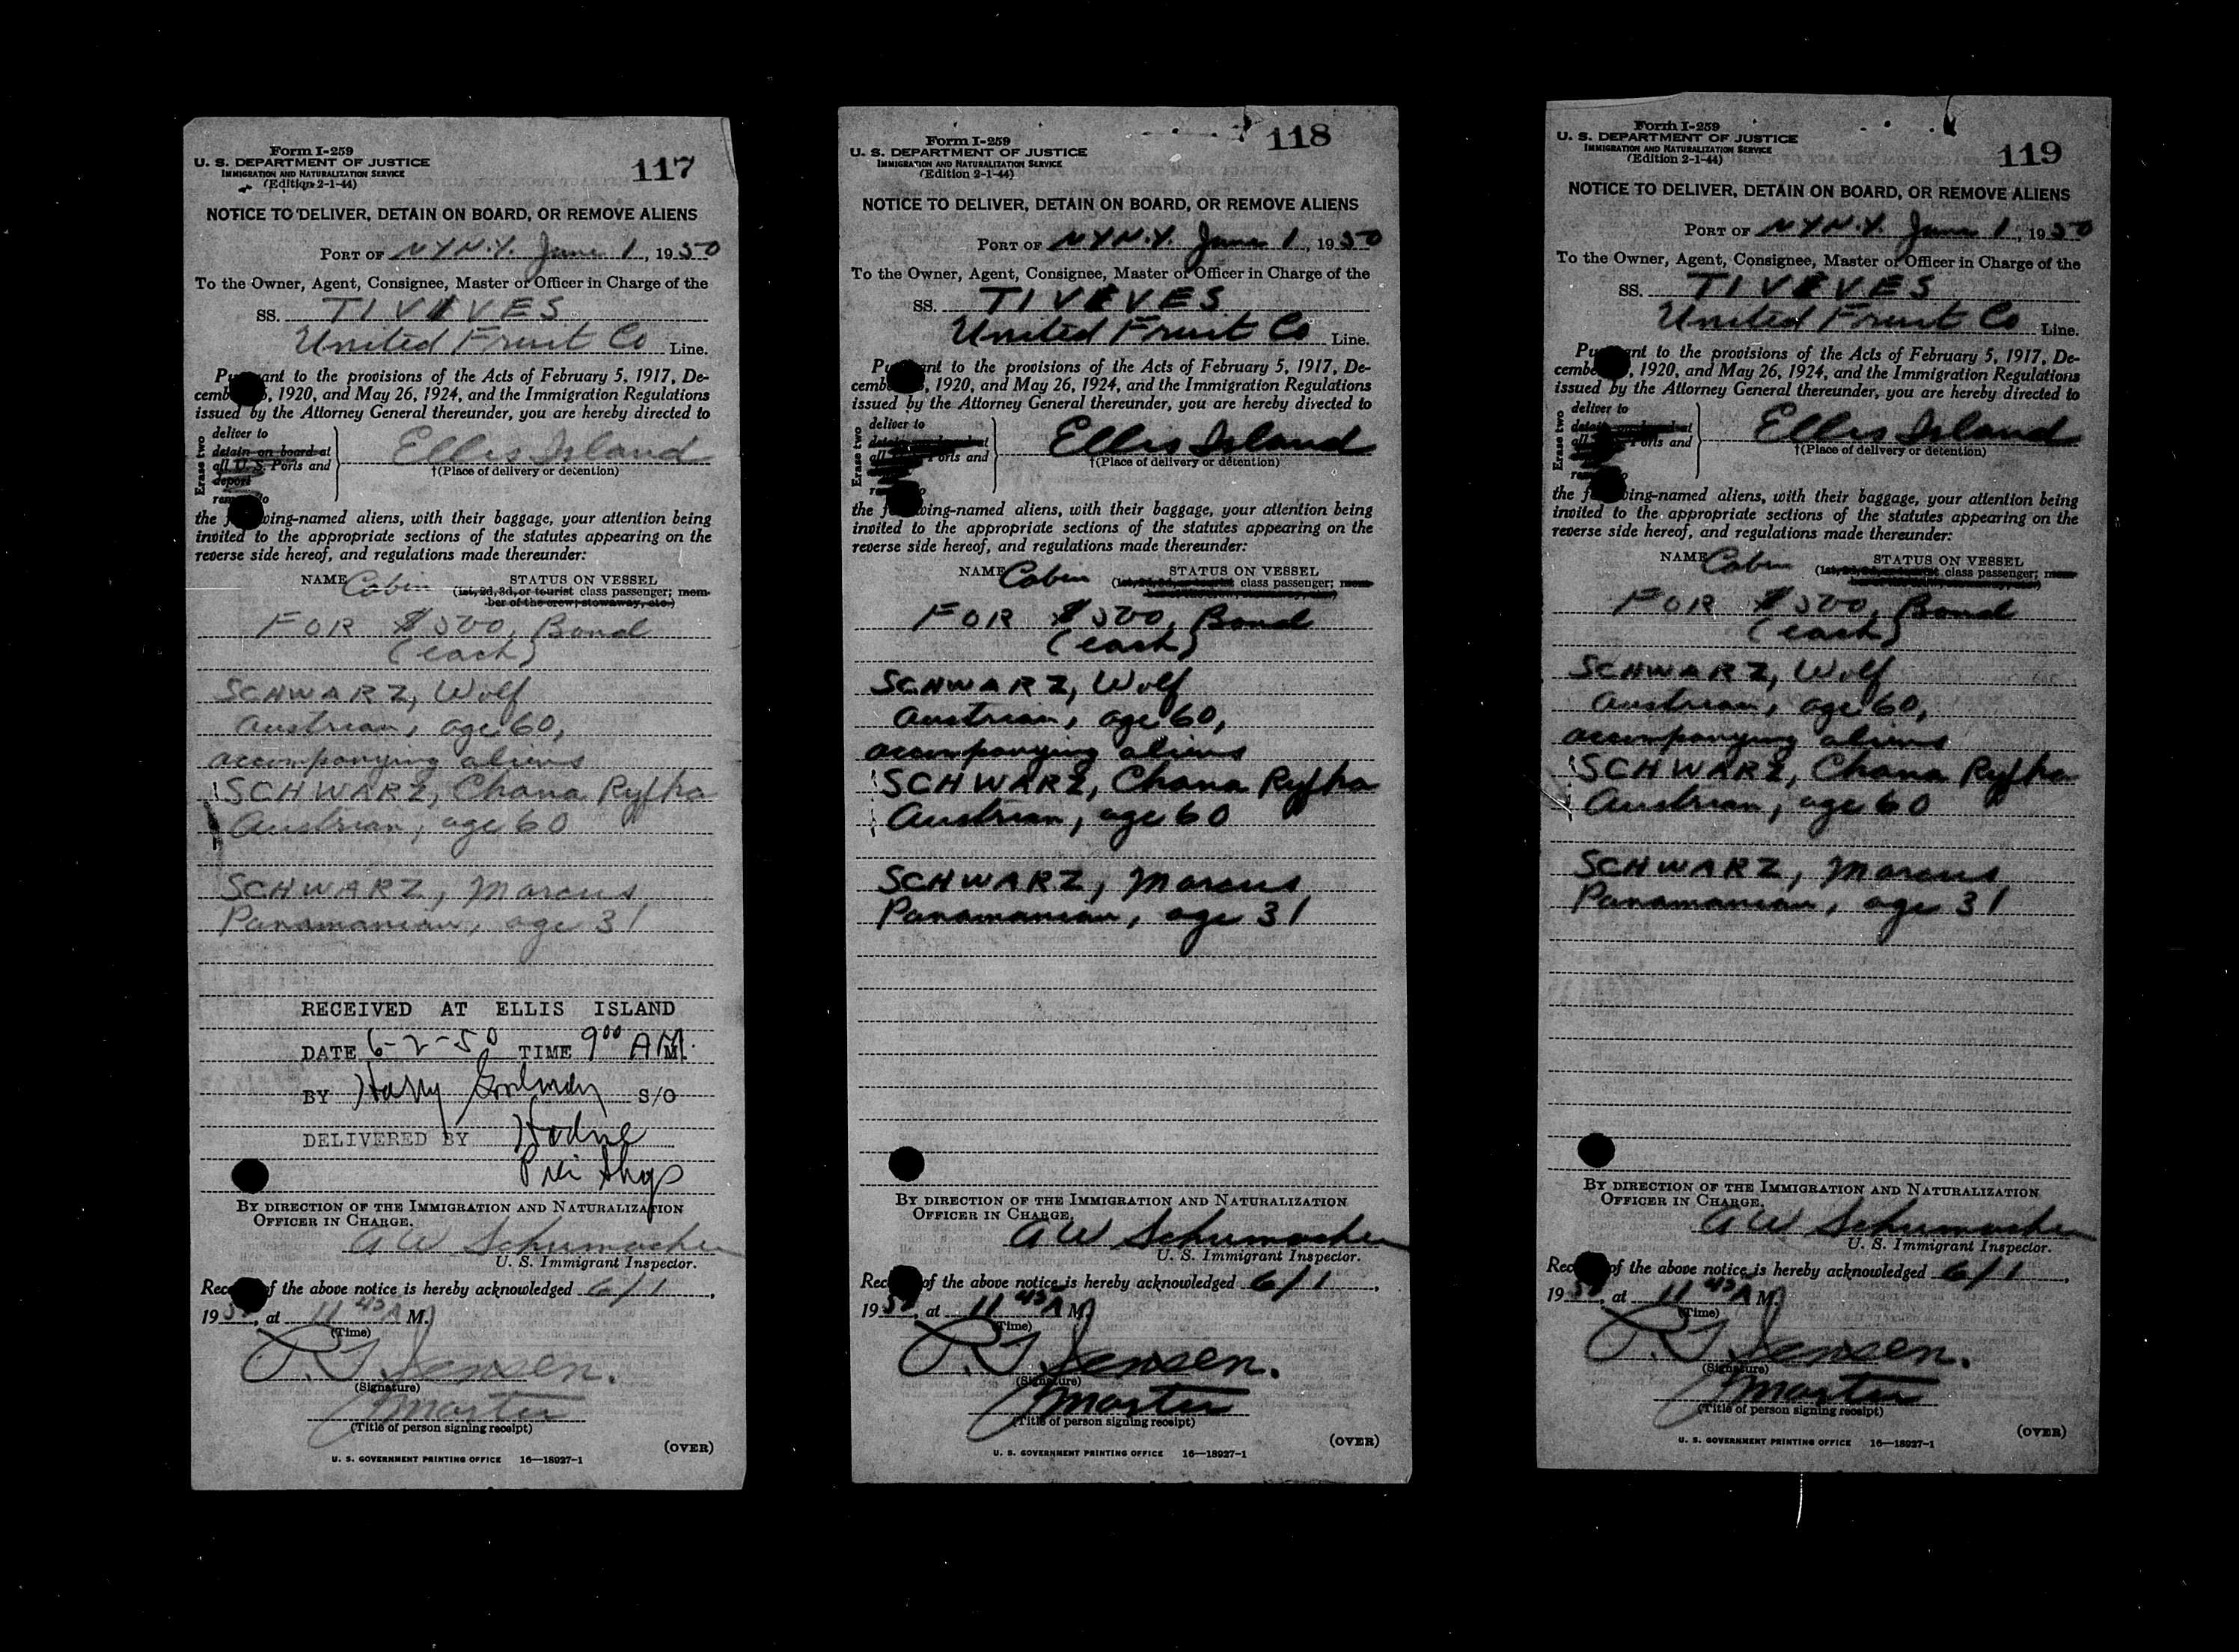 Form I-259
U. S. DEPARTMENT OF JUSTICE
IMMIGRATION AND NATURALIZATION SERVICE
(Edition 2-1-44)
117
NOTICE TO DELIVER, DETAIN ON BOARD, OR REMOVE ALIENS
PORT OF NYN.Y. June 1, 1950
To the Owner, Agent, Consignee, Master or Officer in Charge of the
SS. TIVIVES
United Fruit Co Line.
Pu ant to the provisions of the Acts of February 5, 1917, De-
cemb 5, 1920, and May 26, 1924, and the Immigration Regulations
issued by the Attorney General thereunder, you are hereby directed to
Erase two
deliver to
detain on board at
all U. S. Ports and
deport
rem o
Ellis Island
†(Place of delivery or detention)
the f wing-named aliens, with their baggage, your attention being
invited to the appropriate sections of the statutes appearing on the
reverse side hereof, and regulations made thereunder:
NAME Cabin STATUS ON VESSEL
(1st, 2d, 3d, or tourist class passenger; mem-
ber of the crew; stowaway, etc.)
FOR $500, Bond
(each)
SCHWARZ, Wolf
Austrian, age 60,
accompanying aliens
SCHWARZ, Chana Ryfka
Austrian, age 60
SCHWARZ, Marcus
Panamanian, age 31
RECEIVED AT ELLIS ISLAND
DATE 6-2-50 TIME 9 00 A M.
BY Harry S/O
DELIVERED BY
BY DIRECTION OF THE IMMIGRATION AND NATURALIZATION
OFFICER IN CHARGE.
A W Schumacher
U. S. Immigrant Inspector.
Rec f the above notice is hereby acknowledged 6/1,
1950, at 11 45 A M.
(Time)
Jensen.
(Signature)
Master
(Title of person signing receipt)
(OVER)
U. S. GOVERNMENT PRINTING OFFICE 16—18927-1
Form I-259
U. S. DEPARTMENT OF JUSTICE
IMMIGRATION AND NATURALIZATION SERVICE
(Edition 2-1-44)
118
NOTICE TO DELIVER, DETAIN ON BOARD, OR REMOVE ALIENS
PORT OF NYN.Y. June 1, 1950
To the Owner, Agent, Consignee, Master or Officer in Charge of the
SS. TIVIVES
United Fruit Co Line.
Pu ant to the provisions of the Acts of February 5, 1917, De-
cemb , 1920, and May 26, 1924, and the Immigration Regulations
issued by the Attorney General thereunder, you are hereby directed to
Erase two
deliver to
detain on board at
all Ports and
Ellis Island
†(Place of delivery or detention)
the f wing-named aliens, with their baggage, your attention being
invited to the appropriate sections of the statutes appearing on the
reverse side hereof, and regulations made thereunder:
NAME Cabin STATUS ON VESSEL
(1st, 2d, 3d, or tourist class passenger; mem-
FOR $500, Bond
(each)
SCHWARZ, Wolf
Austrian, age 60,
accompanying aliens
SCHWARZ, Chana Ryfka
Austrian, age 60
SCHWARZ, Marcus
Panamanian, age 31
BY DIRECTION OF THE IMMIGRATION AND NATURALIZATION
OFFICER IN CHARGE.
A W Schumacher
U. S. Immigrant Inspector.
Rec of the above notice is hereby acknowledged 6/1,
1950, at 11 45 A M.
(Time)
Jensen.
(Signature)
Master
(Title of person signing receipt)
(OVER)
U. S. GOVERNMENT PRINTING OFFICE 16—18927-1
Form I-259
U. S. DEPARTMENT OF JUSTICE
IMMIGRATION AND NATURALIZATION SERVICE
(Edition 2-1-44)
119
NOTICE TO DELIVER, DETAIN ON BOARD, OR REMOVE ALIENS
PORT OF NYN.Y. June 1, 1950
To the Owner, Agent, Consignee, Master or Officer in Charge of the
SS. TIVIVES
United Fruit Co Line.
Pu ant to the provisions of the Acts of February 5, 1917, De-
cembe , 1920, and May 26, 1924, and the Immigration Regulations
issued by the Attorney General thereunder, you are hereby directed to
Erase two
deliver to
detain on board at
all Ports and
Ellis Island
†(Place of delivery or detention)
the f wing-named aliens, with their baggage, your attention being
invited to the appropriate sections of the statutes appearing on the
reverse side hereof, and regulations made thereunder:
NAME Cabin STATUS ON VESSEL
(1st, 2d, 3d, or tourist class passenger; mem-
FOR $500, Bond
(each)
SCHWARZ, Wolf
Austrian, age 60,
accompanying aliens
SCHWARZ, Chana Ryfka
Austrian, age 60
SCHWARZ, Marcus
Panamanian, age 31
BY DIRECTION OF THE IMMIGRATION AND NATURALIZATION
OFFICER IN CHARGE.
A W Schumacher
U. S. Immigrant Inspector.
Rec of the above notice is hereby acknowledged 6/1,
1950, at 11 45 A M.
(Time)
Jensen.
(Signature)
Master
(Title of person signing receipt)
(OVER)
U. S. GOVERNMENT PRINTING OFFICE 16—18927-1